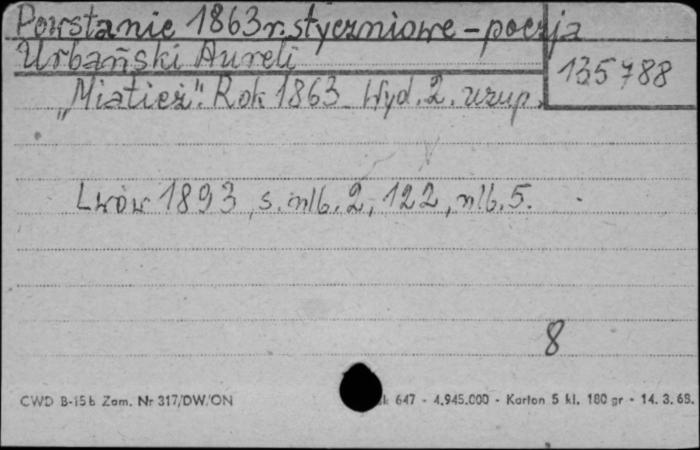 Powstanie 1863 r. styczniowe - poezja
Urbański Aureli
135788
"Miatież". Rok 1863 Wyd. 2. uzup.
Lwów 1893, s. nlb. 2, 122, nlb. 5.
8
CWD B-15b Zam. Nr 317/DW/ON
647 - 4.945.000 - Karton 5 kl. 180 gr - 14. 3. 68.